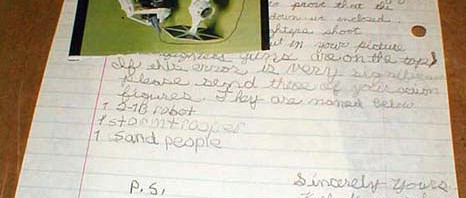 to prove that the
down or enclosed
fighters shoot
but in your picture
guns are on the top)
If this error is very significant
please send three of your action
figures. They are named below
1 2-1B robot
1 stormtrooper
1 Sand people
P.S.
Sincerely yours